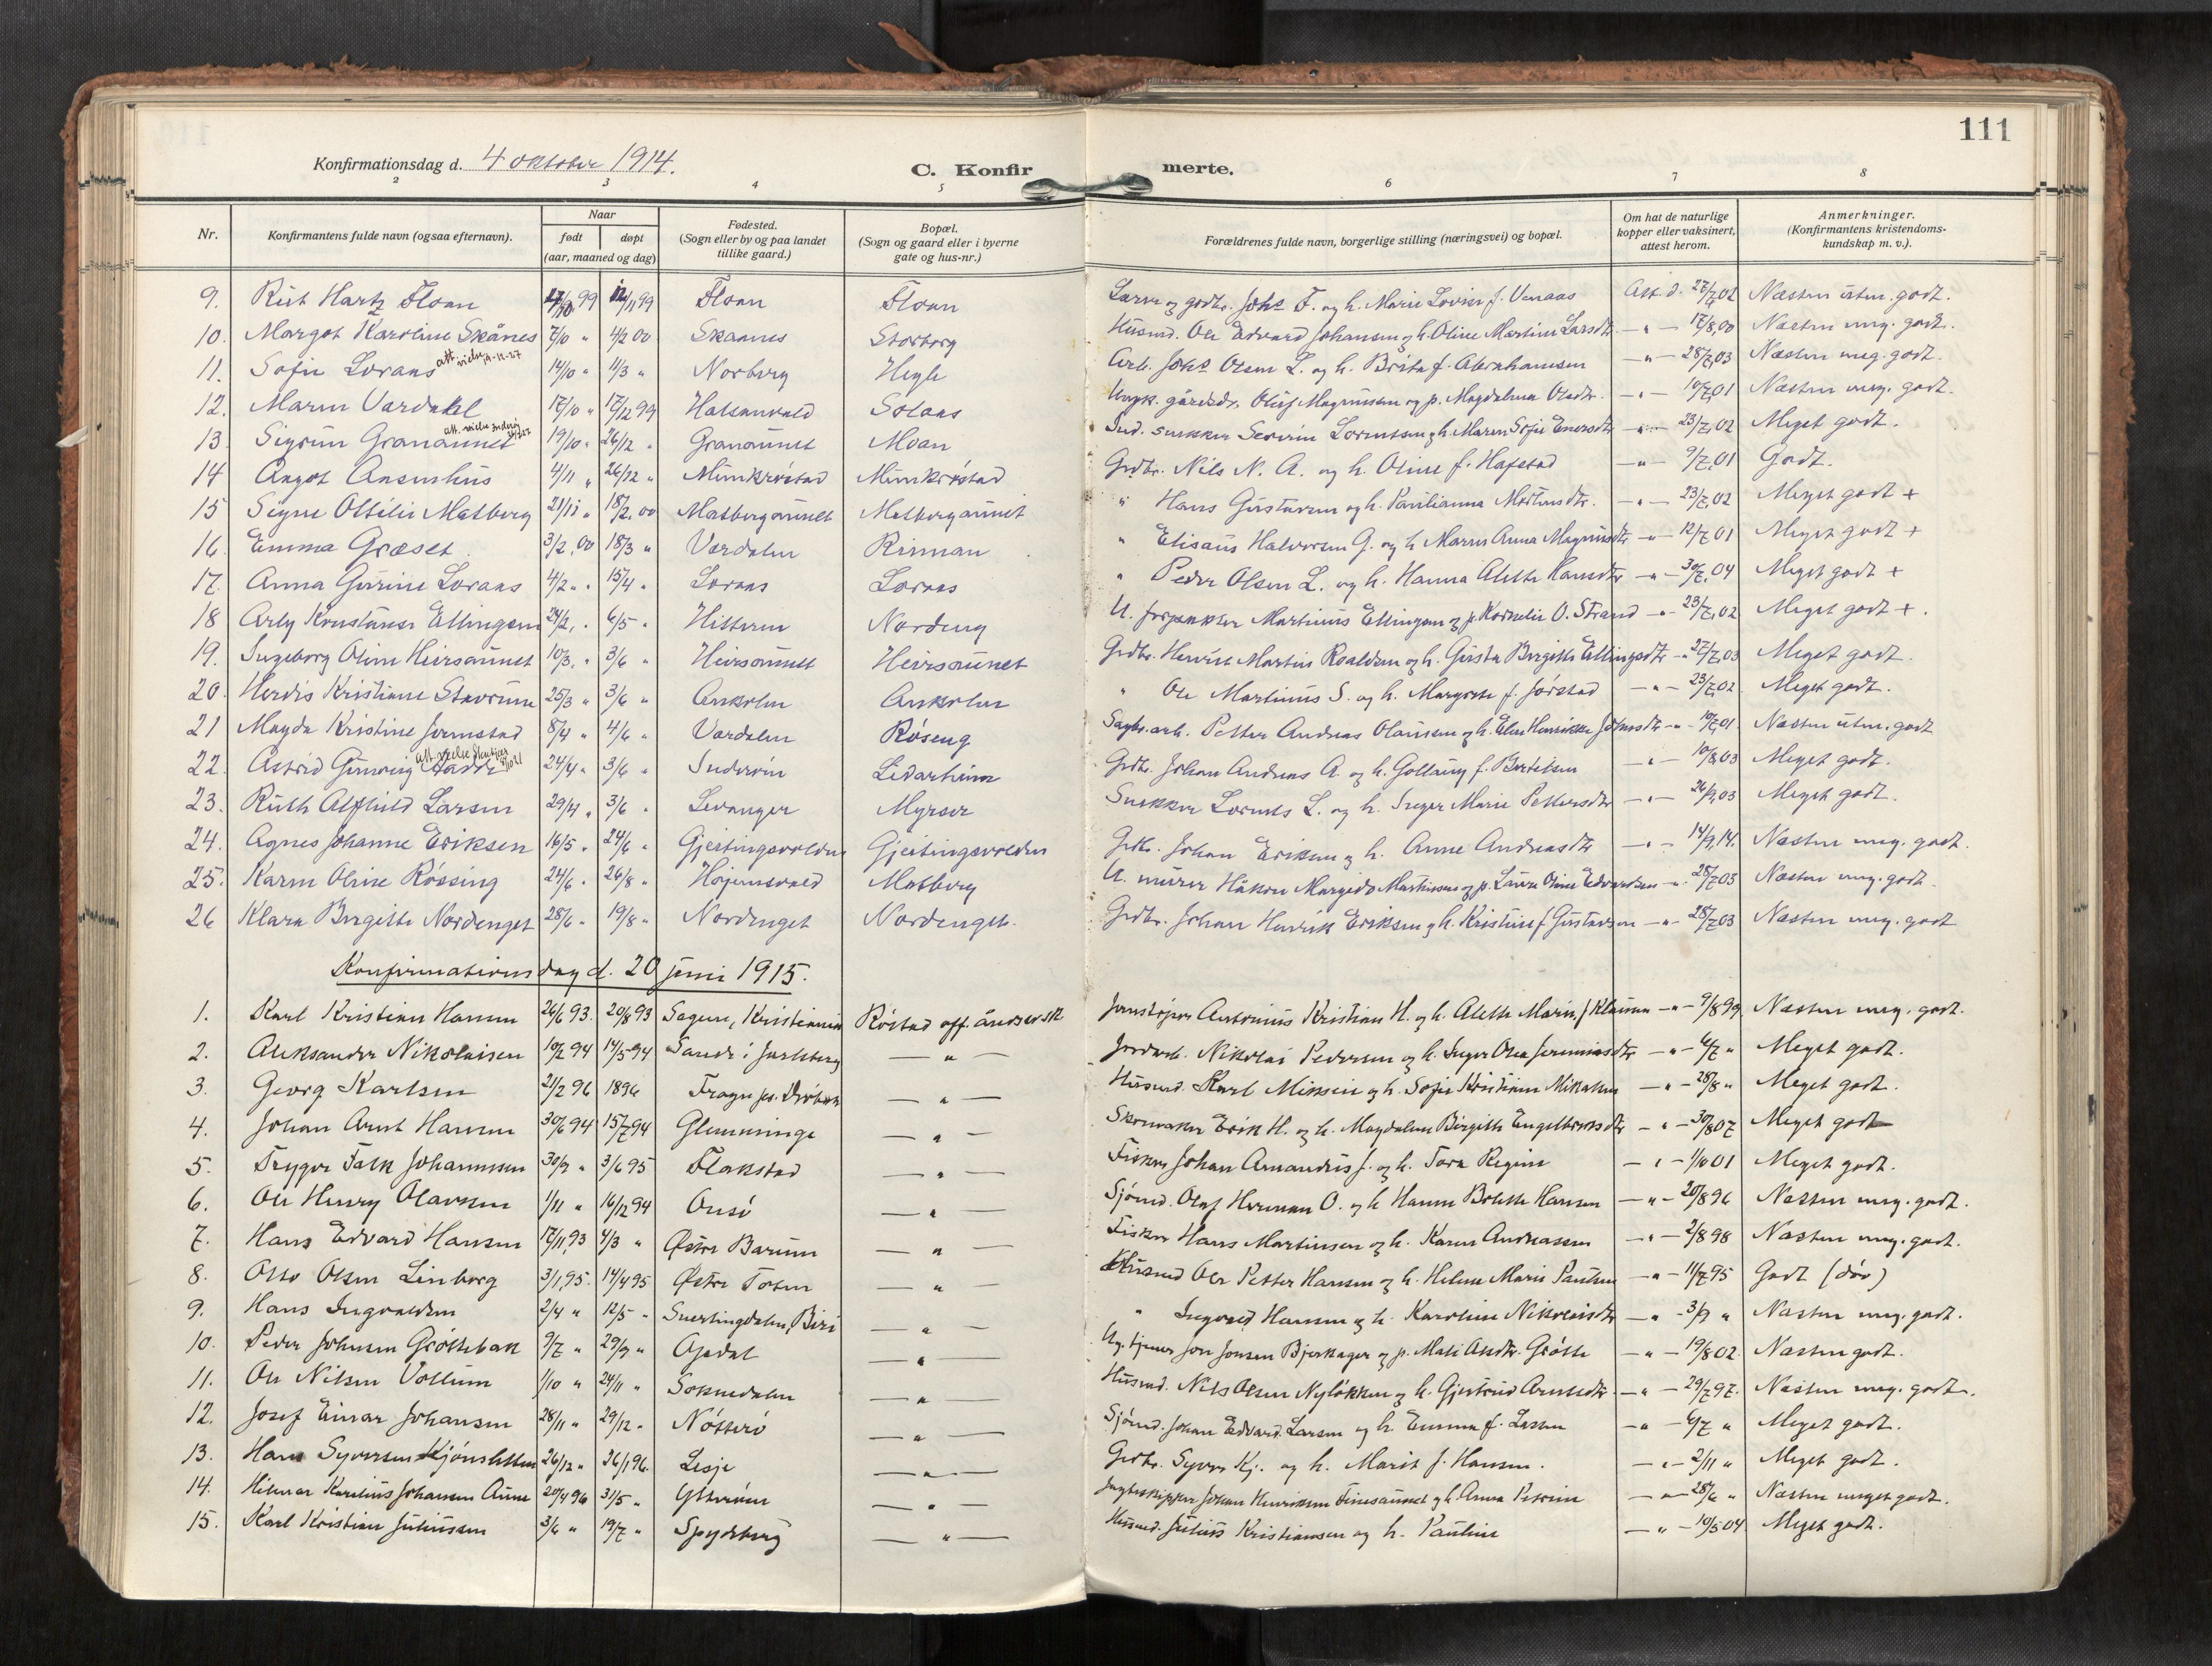 111
Konfirmationsdag d. 4 oktober 1914.
C. Konfirmerte.
2 3 4 5 6 7 8
Nr. | Konfirmantens fulde navn (ogsaa efternavn). | Naar født | døpt (aar, maaned og dag) | Fødested. (Sogn eller by og paa landet tillike gaard.) | Bopæl. (Sogn og gaard eller i byerne gate og hus-nr.) | Forældrenes fulde navn, borgerlige stilling (næringsvei) og bopæl. | Om hat de naturlige kopper eller vaksinert, attest herom. | Anmerkninger. (Konfirmantens kristendoms-kundskap m. v.).
9. Rut Hartz Floan 99 12/11 99 Floan Floan Lærer og godtr. Johs F. og h. Marie Lovise f. Venaas Att. d. 27/7 02 Næsten utm. godt.
10. Margot Karoline Skånes 7/10 " 4/2 00 Skaanes Storborg Husmd. Ole Edvard Johansen og h. Oline Martine Larsdtr. — " — 17/8,00 Næsten meg. godt.
11. Sofie Loraas 14/10 " 11/3 " Norberg Hegle Arb. Johs Olsen L. og h. Brita f. Abrahamsen — " — 28/7,03 Næsten meg. godt.
12. Maren Værdahl 17/10 " 17/12 99 Halsanvald Solaas Ungk. gårdsdr. Oluf Magnussen og p. Magdalena Olsdtr. — " — 10/7,01 Næsten meg. godt.
13. Sigrun Granaunet 19/10 " 26/12 " Granaunet Moan Ind. snekker Severin Lorntsen og h. Maren Sofie Enersdtr — " — 23/7,02 Meget godt.
14 Angot Aasenhus 4/11 " 26/12 " Munkrøstad Munkrøstad Grdbr. Nils N. A. og h. Oline f. Hafstad — " — 9/7,01 Godt.
15 Signe Ottilie Matberg 21/11 " 18/2,00 Matbergaunet Matbergaunet " Hans Gustavsen og h. Paulianna Mortensdtr. — " — 23/7,02 Meget godt +
16. Emma Græset. 3/2,00 18/3 " Værdalen Rinnan " Elisæus Halvorsen G. og h. Maren Anna Magnusdtr — " — 12/7 01 Meget godt +
17. Anna Gurine Loraas 4/2 " 15/4 " Loraas Loraas " Peder Olsen L. og h. Hanna Aletta Hansdtr — " — 30/7,04 Meget godt +
18 Arly Konstanse Ellingsen 24/2, " 6/5 " Hitteren Nordeng U. forpakter Martinus Ellingsen og p. Kornelie O. Strand — " — 23/7,02 Meget godt +.
19. Ingeborg Oline Heirsaunet 10/3, " 3/6 " Heirsaunet Heirsaunet Grdbr. Henrik Martin Roaldsen og h. Gusta Birgitte Ellingsdtr — " 27/7,03 Meget godt.
20. Herdis Kristiane Stavrum 25/3 " 3/6 " Ankolm Ankolm " Ole Martinus S. og h. Margrete f. Jørstad — " — 23/7,02. Meget godt.
21 Magda Kristine Jermstad 8/4 " 4/6 " Værdalen Røseng Sagbr.arb. Petter Andreas Olaussen og h. Elen Henrikke Johnsdtr — " — 10/7,01. Næsten utm. godt
22. Astrid Gunveig Aasve 24/4 " 3/6 " Inderøen Lidarheim Grdbr. Johan Andreas A. og h. Gollaug f. Bertelsen — " — 10/8,03 Meget godt.
23. Ruth Alfhild Larsen 29/4 " 3/6 " Levanger Myrser Snekker Lornts L. og h. Inger Marie Pettersdtr — " — 26/9,03 Meget godt.
24. Agnes Johanne Eriksen 16/5 " 24/6 " Gjeitingsvolden Gjeitingsvolden Grbr. Johan Eriksen og h. Anne Andreasdtr — " — 14/9,14. Næsten meg. godt.
25. Karen Oline Røssing 24/6 " 26/8 " Højemsvald Matberg U. murer Håkon Margido Martinsen og p. Laura Oline Edvardsen — " 28/7 03 Næsten meg. godt.
26 Klara Birgitte Nordenget 28/6 " 19/8 " Nordenget Nordenget. Grdbr. Johan Henrik Eriksen og h. Kristine f. Gustavsen — " — 28/7 03 Næsten meg. godt
Konfirmationsdag d. 20 juni 1915.
1. Karl Kristian Hansen 26/6 93. 20/8 93 Sagene, Kristiania Røstad off. åndssv.sk Jernstøper Antonius Kristian H. og h. Alette Marie f. Klausen — " — 9/8 99 Næsten meg. godt.
2. Aleksander Nikolaisen 10/2 94 14/5 94 Sande i Jarlsberg — " — Jordarb. Nikolai Pedersen og h. Inger Olea Jeremiasdtr — " — 6/7 " Meget godt.
3. Georg Karlsen 21/2 96 1896 Frogn Drøbak — " — Husmd. Karl Mikkin og h. Sofie Kristiane Mikalsen — " — 28/8 " Meget godt.
4. Johan Arnt Hansen 30/6 94 15/7 94 Glemminge — " — Skomaker Erik H. og h. Magdalene Birgitte Engelbretsdtr — " — 30/8 07 Meget godt
5. Trygve Falk Johannessen 30/9 " 3/6 95 Flakstad — " — Fisker Johan Amandus J. og h. Tora Regine — " — 1/10 01 Meget godt.
6. Ole Henry Olavsen 1/11 " 16/12 94 Onsø — " — Sjømd. Olaf Herman O. og h. Hanna Bolette Hansen — " — 20/8 96 Næsten meg. godt.
7. Hans Edvard Hansen 17/11,93 4/3 " Østre Bærum — " — Fisker Hans Martinsen og h. Karen Andreassen — " — 2/8 98 Næsten meg. godt.
8. Otto Olsen Linborg 3/1,95. 14/4 95 Østre Toten — " — Husmd Ole Petter Hansen og h. Helene Marie Paulsen — " — 11/7 95 Godt (døv)
9. Hans Ingvaldsen 2/4 " 12/5 " Snertingdalen, Biri — " — " Ingvald Hansen og h. Karoline Nikolaisdtr — " — 3/9 " Næsten meg. godt.
10. Peder Johnsen Grøttebak 9/7 " 29/9 " Opdal — " — Ug. tjener Jon Jonsen Bjerkager og p. Mali Olsdtr. Grøtte — " — 19/8 02. Næsten godt.
11. Ole Nilsen Vollum 1/10 " 24/11 " Soknedalen — " — Husmd. Nils Olsen Nyløkken og h. Gjertrud Arntsdtr. — " — 29/7 97. Næsten meg. godt.
12. Josef Einar Johansen 28/11 " 29/12 " Nøtterø — " — Sjømd. Johan Edvard Larsen og h. Emma f. Larsen — " — 6/7 " Meget godt.
13. Hans Syversen Kjønsletten 26/12 " 26/1 96. Lesje — " — Grdbr. Syver Kj. og h. Marit f. Hansen. — " — 2/11 " Meget godt.
14. Hilmar Karelius Johansen Aune 20/4 96 31/5 " Ytterøen — " — Jægteskipper Johan Henriksen Finesaunet og h. Anna Petrine — " — 28/6 " Næsten meget godt.
15. Karl Kristian Juliussen 3/6 " 19/7 " Spydeberg — " — Husmd. Julius Kristiansen og h. Pauline — " — 10/5 04 Meget godt.